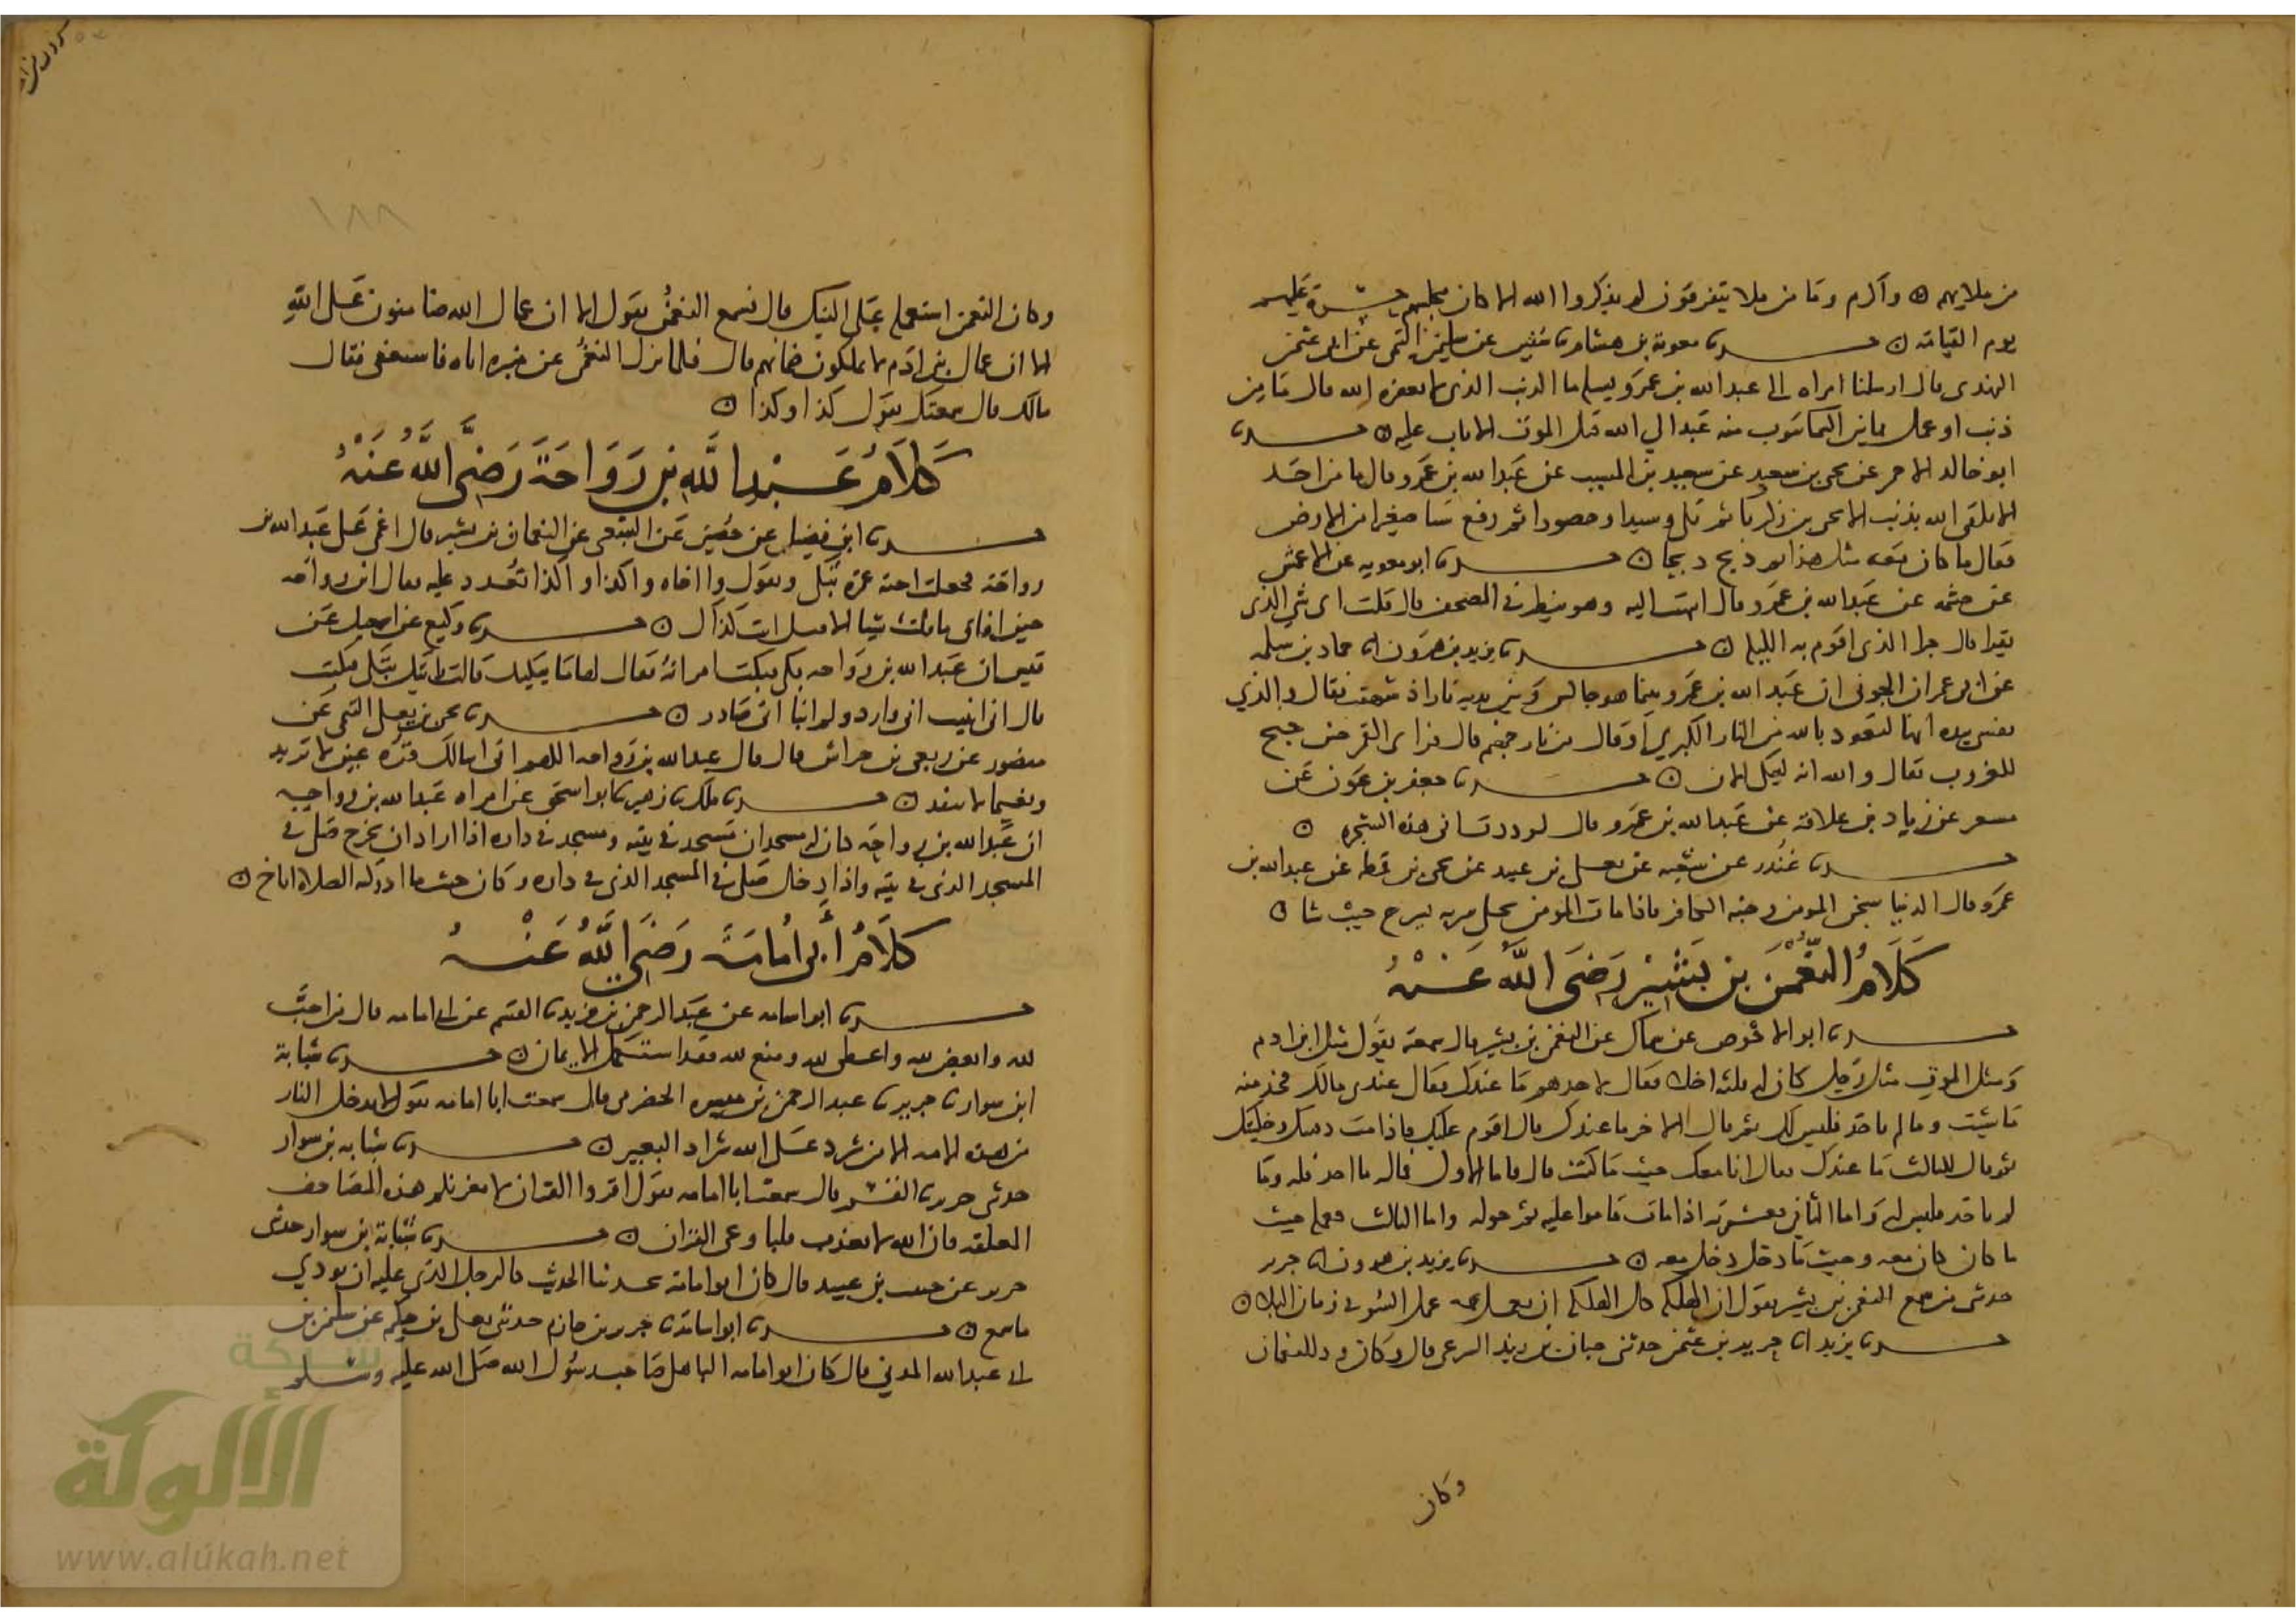 من ملايهم ۞ وآدم وما من ملا يتفرقون لم يذكروا الله الا كان مجلسهم حسرة عليهم
يوم القيامة ن حدثنا معوية بن هشام ثنا سفين عن سليمن التيمي عن ابي عثمن
النهدي قال ارسلنا امراه الى عبد الله بن عمرو يسلها ما الذنب الذي لا يغفره الله قال ما من
ذنب او عمل مما بين السما يتوب منه عبد الي الله قبل الموت الا تاب عليه ن حدثنا
ابو خالد الاحمر عن يحيى بن سعيد عن سعيد بن المسيب عن عبد الله بن عمرو قال ما من احد
الا يلقى الله بذنب الا يحيى بن زكريا ثم تلى وسيدا وحصورا ثم رفع شيا صغيرا من الارض
فقال ما كان معه مثل هذا ثم ذبح ذبحا ن حدثنا ابو معويه عن الاعمش
عن خثمه عن عبد الله بن عمرو قال انتهيت اليه وهو ينظر في المصحف قال قلت اي شي الذي
تقرا قال حزا الذي اقوم به الليلة ن حدثنا يزيد بن هرون انا حماد بن سلمه
عن ابي عمران الجوني ان عبد الله بن عمرو بينما هو جالس وبين يديه نارا اذ شهقت فقال والذي
نفسي بيده انها لتعوذ بالله من النار الكبري او قال من نار جهنم قال فراى القمر حين جنح
للغروب فقال والله انه ليبكي الان ن حدثنا جعفر بن عون عن
مسعر عن زياد بن علاقه عن عبد الله بن عمرو قال لوددت اني هذه الشجره ن
حدثنا غندر عن شعبه عن يعلى بن عبيد عن يحيى بن قمطه عن عبد الله بن
عمرو قال الدنيا سجن المومن وجنه الكافر فاذا مات المومن يخلى سربه يسرح حيث شا ن
كلام النعمن بن بشير رضي الله عنه
حدثنا ابو الاحوص عن سماك عن النعمن بن بشير قال سمعته يقول مثل ابن ادم
ومثل الموت مثل رجل كان له ثلثة اخلا فقال لاحدهم ما عندك فقال عندي مالك فخذ منه
ما شيت وما لم تاخذ فليس لك ثم قال الاخر ما عندك قال اقوم عليك فاذا مت دفنتك وخليتك
ثم قال للثالث ما عندك فقال انا معك حيث ما كنت قال فاما الاول فماله ما اخذ فله وما
لم ياخذ فليس له واما الثاني فعشيرته اذا مات قاموا عليه ثم خلوه واما الثالث فعمله حيث
ما كان كان معه وحيث ما دخل دخل معه ن حدثنا يزيد بن هرون انا جرير
حدثني من سمع النعمن بن بشير يقول ان الهلكة كل الهلكة ان تعمل عمل السوء في زمان البلا ن
حدثنا يزيد انا جرير بن عثمن حدثني حبان بن زيد الشرعبي قال وكان ود للنعمان
وكان
١٨٨
وكان النعمن استعمله على النبك قال فسمع النعمن يقول الا ان عمال الله ضامنون على الله
الا ان عمال بني ادم لا يملكون ضمانهم قال فلما نزل النعمن عن منبره اتاه فاستعفى فقال
مالك قال سمعتك تقول كذا وكذا ن
كلام عبد الله بن رواحة رضي الله عنه
حدثنا ابن فضيل عن حصين عن الشعبي عن النعمان بن بشير قال اغمي على عبد الله بن
رواحة فجعلت اخته عمرة تبكي وتقول وا اخاه واكذا واكذا تعدد عليه فقال ابن رواحه
حين افاق ما قلت شيا الا قيل انت كذاك ن حدثنا وكيع عن اسمعيل عن
قيس ان عبد الله بن رواحه بكى فبكت امراته فقال لها ما يبكيك قالت رايتك تبكي فبكيت
قال اني انبيت اني وارد ولم انبا اني صادر ن حدثنا يحيى بن يعلى التيمي عن
منصور عن ربعي بن حراش قال قال عبد الله بن رواحه اللهم اني اسالك قرة عين لا ترتد
ونعيما لا ينفد ن حدثنا ملك ثنا زهير ثنا ابو اسحق عن امراه عبد الله بن رواحه
ان عبد الله بن رواحه كان له مسجدان مسجد في بيته ومسجد في داره اذا اراد ان يخرج صلى في
المسجد الذي في بيته واذا دخل صلى في المسجد الذي في داره وكان حيث ما ادركته الصلاة اناخ ن
كلام أبي أمامة رضي الله عنه
حدثنا ابو اسامه عن عبد الرحمن بن يزيد ثنا القسم عن ابي امامه قال من احب
لله وابغض لله واعطى لله ومنع لله فقد استكمل الايمان ن حدثنا شبابة
ابن سوار ثنا حرير ثنا عبد الرحمن بن ميسره الحضرمي قال سمعت ابا امامه يقول لا يدخل النار
من هذه الامه الا من شرد على الله شراد البعير ن حدثنا شبابه بن سوار
حدثني حرير ثنا القسم قال سمعت ابا امامه يقول اقروا القران لا يغرنكم هذه المصاحف
المعلقه فان الله لا يعذب قلبا وعى القران ن حدثنا شبابة ابن سوار حدثني
حرير عن حبيب بن عبيد قال كان ابو امامه يحدثنا الحديث كالرجل الذي عليه ان يودي
ما سمع ن حدثنا ابو اسامة ثنا جرير بن حازم حدثني يعلى بن حكيم عن سليمن بن
ابي عبد الله المدني قال كان ابو امامه الباهلي صاحب رسول الله صلى الله عليه وسلم
شبكة
الألوكة
www.alukah.net